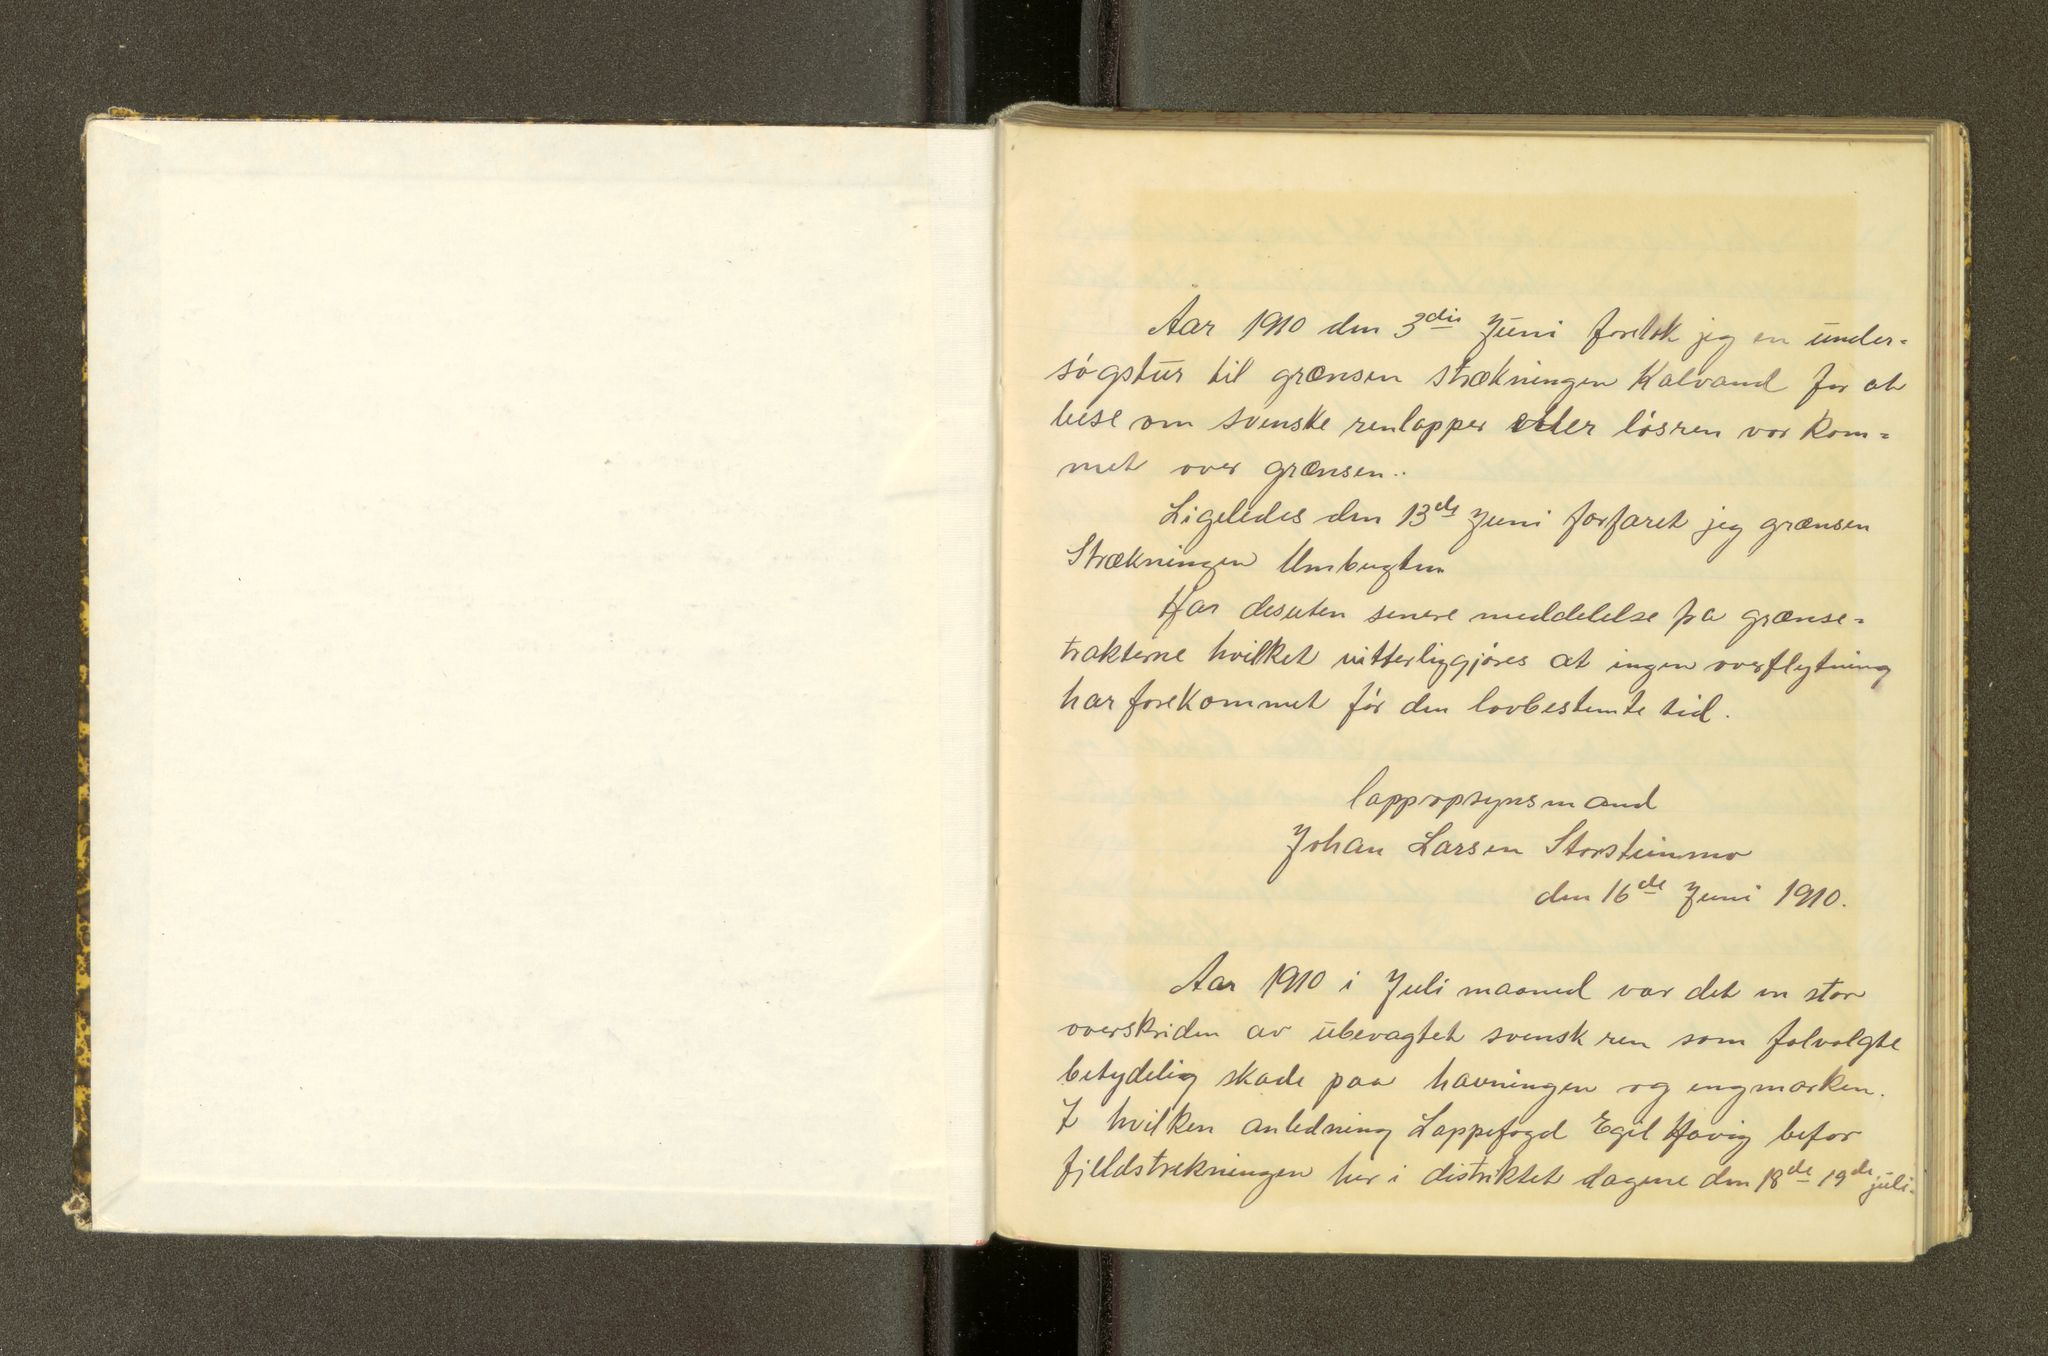 Aar 1910 den 3die Juni foretok jeg en under-
søgstur til grænsen strækningen Kalvand for at
bese om svenske renlapper eller løsren var kom-
met over grænsen.
Ligeledes den 13de Juni forfaret jeg grænsen
Strækningen Umbugten
Har desuten senere meddelelse fra grænse-
trakterne hvilket vitterliggjøres at ingen overflytning
har forekommet før den lovbestemte tid.
lappopsynsmand
Johan Larsen Storsteinmo
den 16de Juni 1910.
Aar 1910 i Juli maaned var det en stor
overskriden av ubevagtet svensk ren som folvolgte
betydelig skade paa havningen og engmarken.
I hvilken anledning Lappefogd Egil Havig befor
fjeldstrekningen her i distriktet dagene den 18de 19de juli.